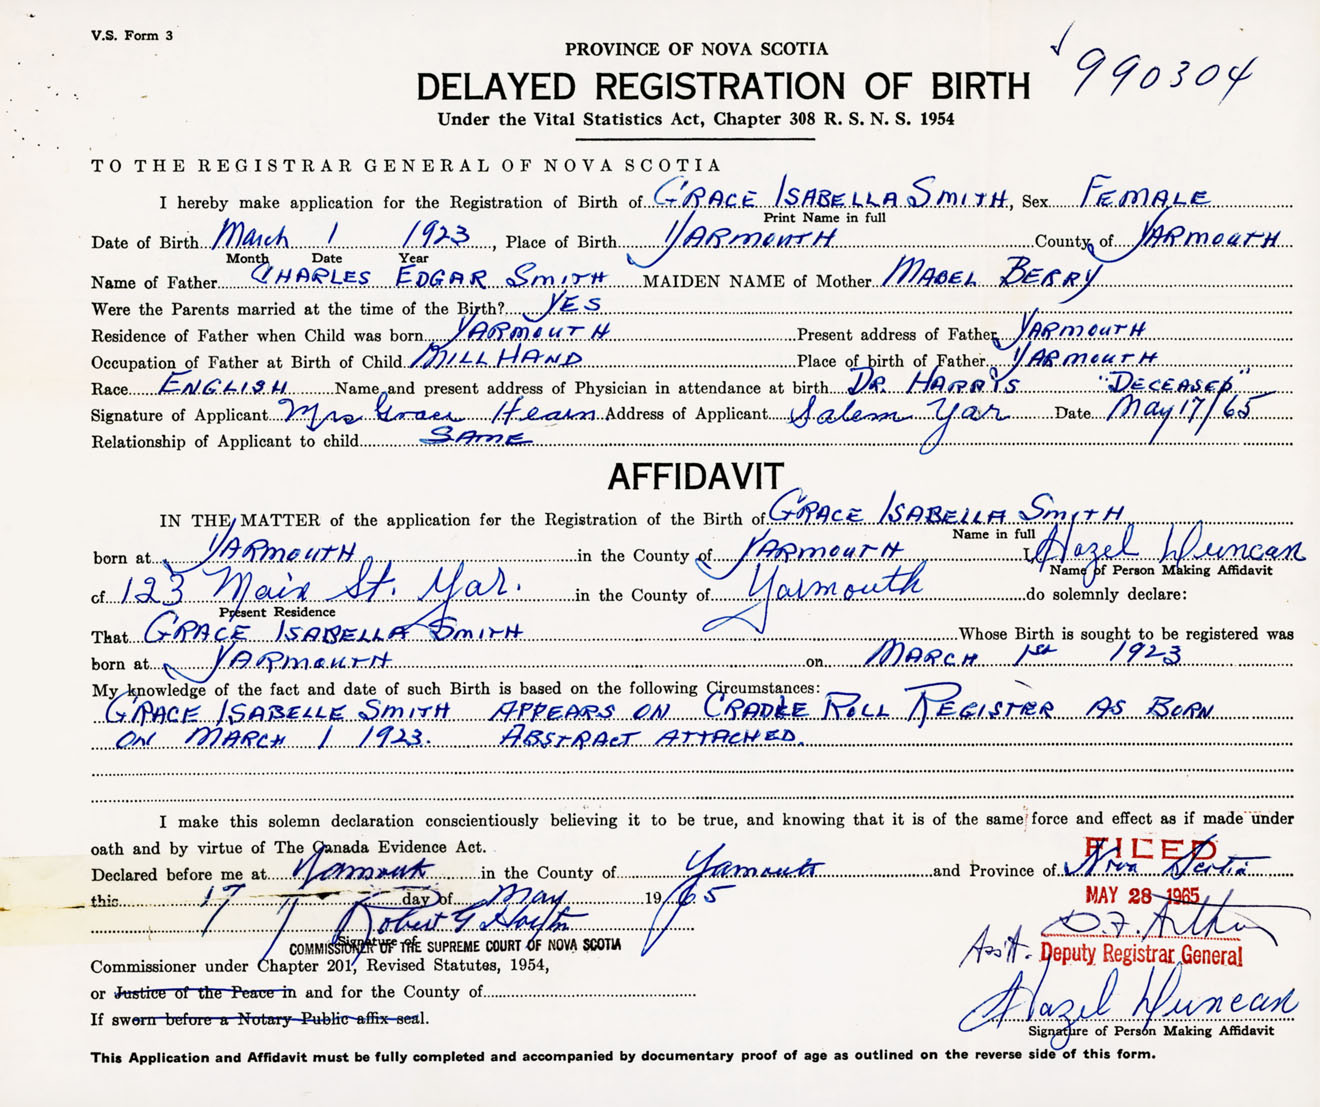 V.S. Form 3
PROVINCE OF NOVA SCOTIA
990304
DELAYED REGISTRATION OF BIRTH
Under the Vital Statistics Act, Chapter 308 R. S. N. S. 1954
TO THE REGISTRAR GENERAL OF NOVA SCOTIA
I hereby make application for the Registration of Birth of GRACE ISABELLA SMITH, Sex FEMALE
Print Name in full
Date of Birth March 1 1923, Place of Birth YARMOUTH County of YARMOUTH
Month Date Year
Name of Father CHARLES EDGAR SMITH MAIDEN NAME of Mother MABEL BERRY
Were the Parents married at the time of the Birth? YES
Residence of Father when Child was born YARMOUTH Present address of Father YARMOUTH
Occupation of Father at Birth of Child MILL HAND Place of birth of Father YARMOUTH
Race ENGLISH Name and present address of Physician in attendance at birth DR. HARRIS "DECEASED"
Signature of Applicant Mrs Grace Hearn Address of Applicant Salem Yar Date May 17/65
Relationship of Applicant to child SAME
AFFIDAVIT
IN THE MATTER of the application for the Registration of the Birth of GRACE ISABELLA SMITH
Name in full
born at YARMOUTH in the County of YARMOUTH I, Hazel Duncan
Name of Person Making Affidavit
of 123 Main St. Yar. in the County of Yarmouth do solemnly declare:
Present Residence
That GRACE ISABELLA SMITH Whose Birth is sought to be registered was
born at YARMOUTH on MARCH 1st 1923
My knowledge of the fact and date of such Birth is based on the following Circumstances:
GRACE ISABELLE SMITH APPEARS ON CRADLE ROLL REGISTER AS BORN
ON MARCH 1 1923. ABSTRACT ATTACHED.
I make this solemn declaration conscientiously believing it to be true, and knowing that it is of the same force and effect as if made under
oath and by virtue of The Canada Evidence Act.
FILED
Declared before me at Yarmouth in the County of Yarmouth and Province of Nova Scotia
this 17 day of May 1965
MAY 28 1965
Robert G
Signature of
COMMISSIONER OF THE SUPREME COURT OF NOVA SCOTIA
Ass't. Deputy Registrar General
Commissioner under Chapter 201, Revised Statutes, 1954,
or Justice of the Peace in and for the County of
Hazel Duncan
If sworn before a Notary Public affix seal.
Signature of Person Making Affidavit
This Application and Affidavit must be fully completed and accompanied by documentary proof of age as outlined on the reverse side of this form.